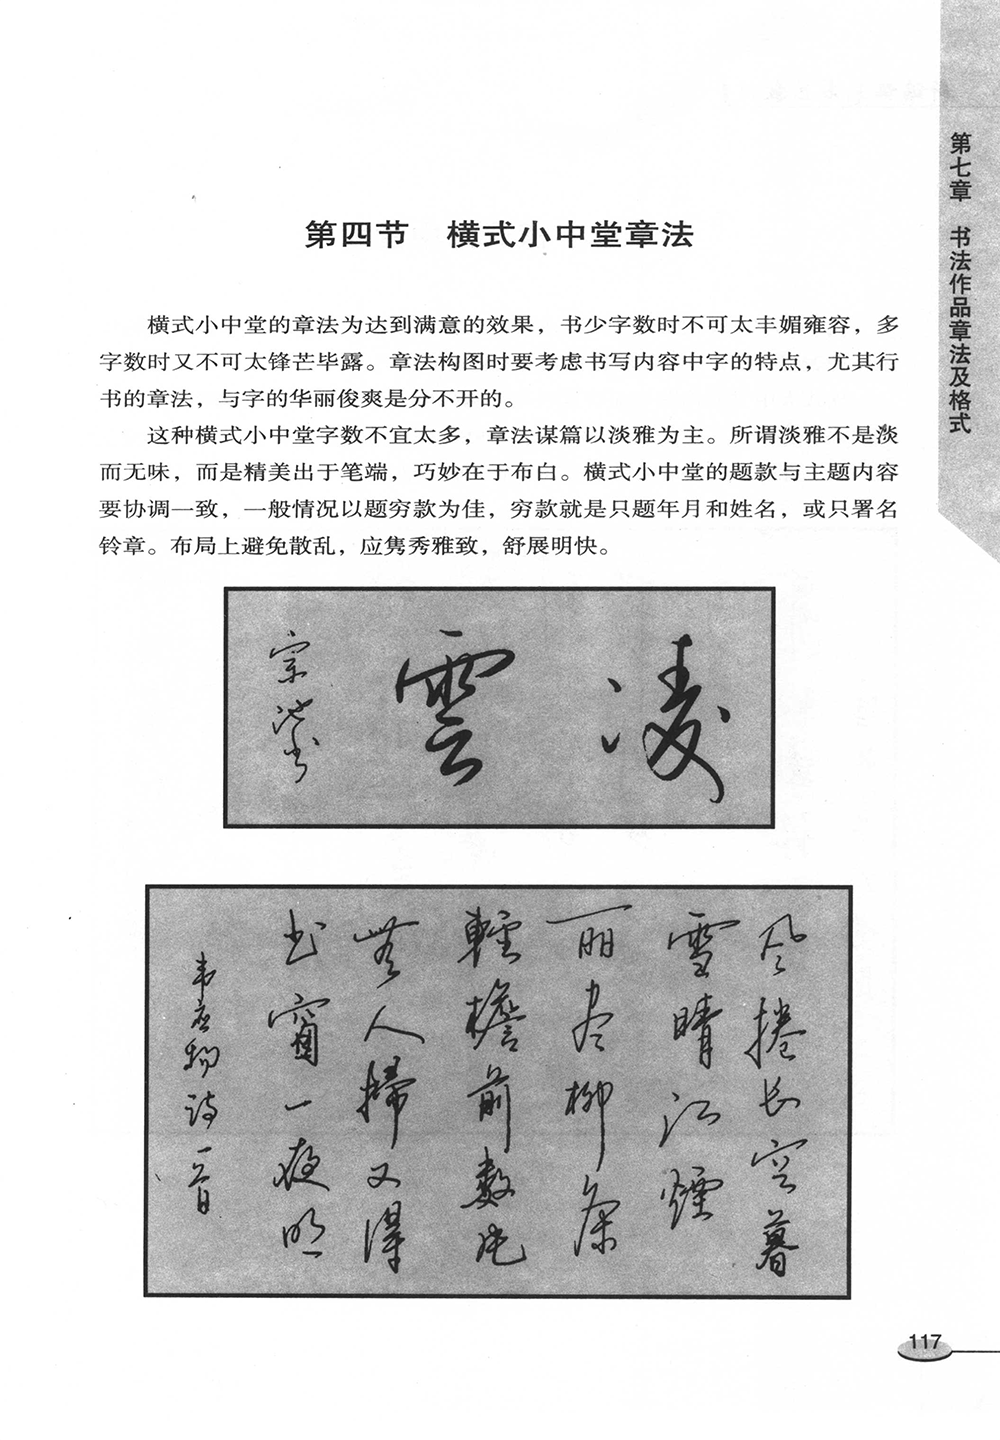 第七章 书法作品章法及格式
第四节 横式小中堂章法
横式小中堂的章法为达到满意的效果，书少字数时不可太丰媚雍容，多
字数时又不可太锋芒毕露。章法构图时要考虑书写内容中字的特点，尤其行
书的章法，与字的华丽俊爽是分不开的。
这种横式小中堂字数不宜太多，章法谋篇以淡雅为主。所谓淡雅不是淡
而无味，而是精美出于笔端，巧妙在于布白。横式小中堂的题款与主题内容
要协调一致，一般情况以题穷款为佳，穷款就是只题年月和姓名，或只署名
铃章。布局上避免散乱，应隽秀雅致，舒展明快。
凌
雲
风捲长空暮
雪晴江煙
丽尽柳条
輕檐前数片
無人掃又得
书窗一夜明
韦应物诗一首
117